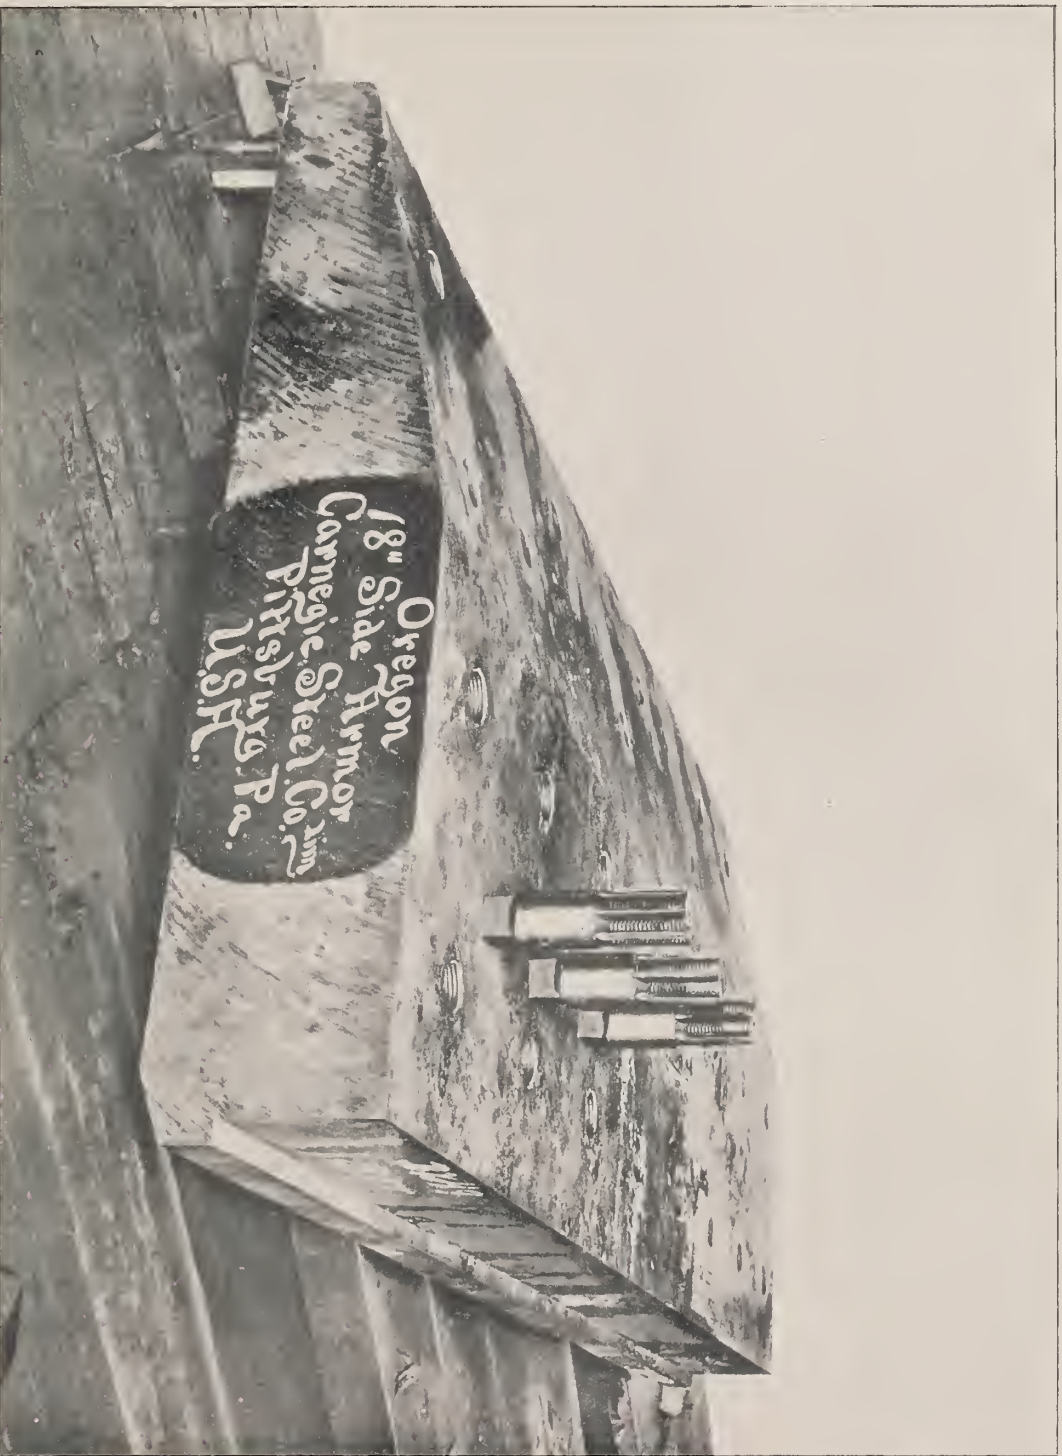 Oregon
18" Side Armor
Carnegie. Steel. Co. Lim
Pittsburg. Pa.
U.S.A.